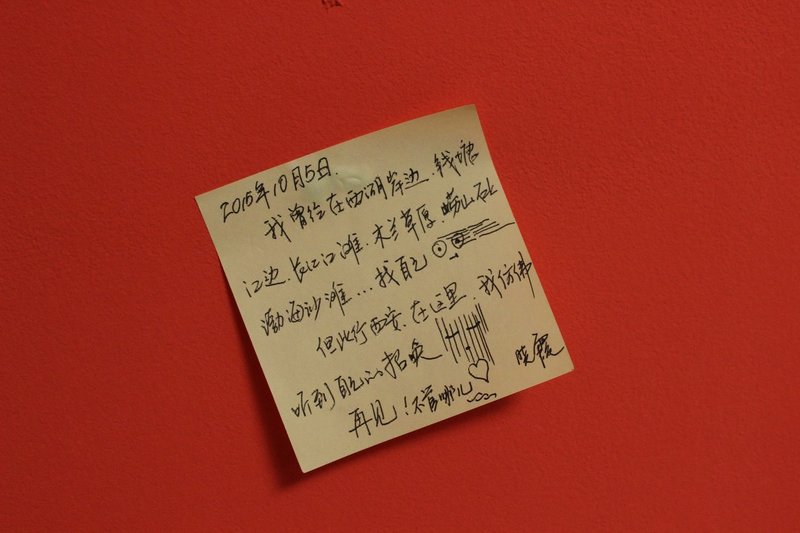 2015年10月5日.
我曾经在西湖岸边、钱塘
江边、长江江滩、木兰草原、崂山石上
渤海沙滩…找自己
但此行西安、在这里、我仿佛
听到自己的招唤
再见！不管哪儿
晓霞